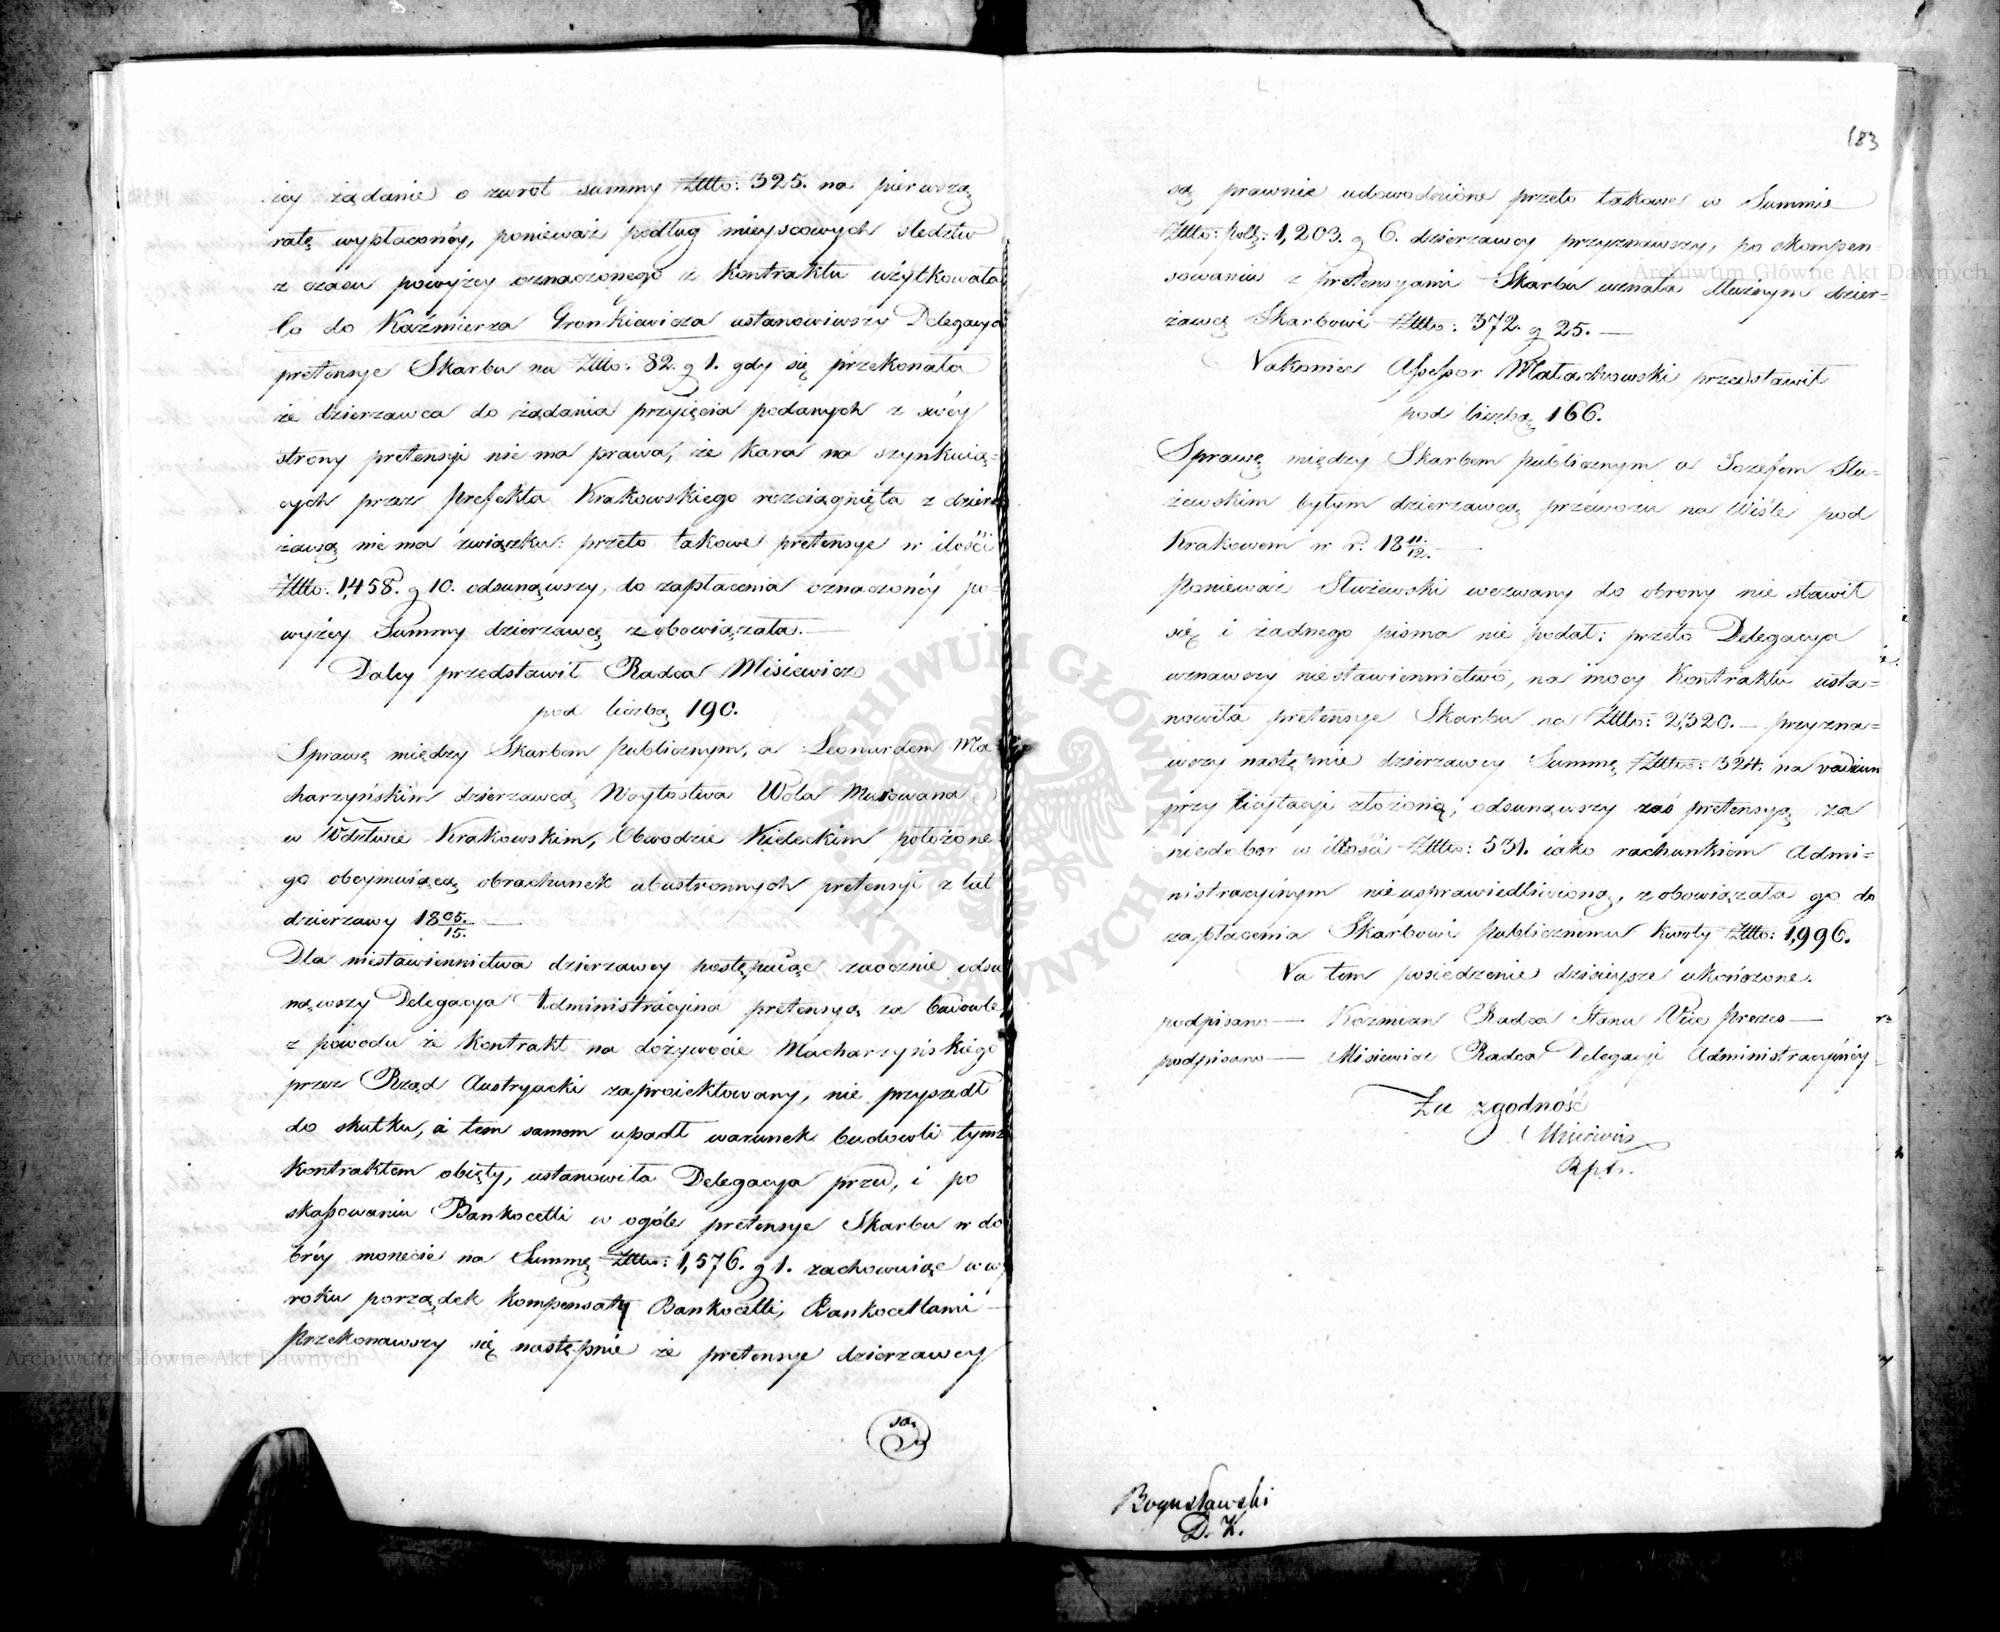 icy żądanie o zwrot summy Złłto: 325. na pierwszą
ratę wypłaconéy, ponieważ podług mieyscowych śledztw
z czasu powyżey oznaczonego z kontraktu użytkowała
to do Kaźmierza Gronkiewicza ustanowiwszy Delegacya
pretensye Skarbu na Złłto: 82. g 1. gdy się przekonała
że dzierzawca do żądania przyięcia podanych z swéy
strony pretensji nie ma prawa, że kara na szynkuią=
cych przez prefekta Krakowskiego rozciągnięta z dzier
żawą nie ma związku: przeto takowe pretensye w ilości
Złłto: 1,458. g 10. odsunąwszy, do zapłacenia oznaczonéy po=
wyżey Summy dzierzawcę zobowiązała.—
Daley przedstawił Radca Misiewicz
pod liczbą 190.
Sprawę między Skarbem publicznym, a Leonardem Ma=
charzyńskim dzierzawcą Woytostwa Wola Murowana
w Wdztwie Krakowskim, Obwodzie Kieleckim położone
go obeymuiącą obrachunek obustronnych pretensji z lat
dzierzawy 18 05./15. —
Dla niestawiennictwa dzierzawcy postępuiąc zaocznie odsu
nąwszy Delegacya Administracyina pretensyą za budowle
z powodu że kontrakt na dożywocie Macharzyńskiego
przez Rząd Austryacki zaproiektowany, nie przyszedł
do skutku, a tem samem upadł warunek budowli tymże
kontraktem obięty, ustanowiła Delegacya przed, i po
skassowaniu Bankocetli w ogóle pretensye Skarbu w do
bréy monecie na Summę Złłto: 1,576. g 1. zachowuiąc w wy
roku porządek kompensaty Bankocetli, Bankocetlami —
Przekonawszy się następnie że pretensye dzierzawcy
są
183
są prawnie udowodnione przeto takowe w Summie
Złłto: pols: 1,203. g 6. dzierzawcy przyznawszy, po skompen=
sowaniu z pretensyami Skarbu uznała dłużnym dzier=
żawcę Skarbowi Złłto: 372. g 25. —
Nakoniec Assessor Małachowski przedstawił
pod liczbą 166.
Sprawę między Skarbem publicznym a Jozefem Stu=
żewskim byłym dzierzawcą przewozu na Wiśle pod
Krakowem w r. 18 11./12. —
Ponieważ Stużewski wezwany do obrony nie stawił
się i żadnego pisma nie podał: przeto Delegacya
uznawszy niestawiennictwo, na mocy Kontraktu usta=
nowiła pretensye Skarbu na Złłto: 2,320. — przyzna=
wszy następnie dzierzawcy Summę Złłto: 324. na vadium
przy licytacji złożoną, odsunąwszy zaś pretensyą za
niedobor w ilości Złłto: 531. iako rachunkiem Admi=
nistracyinym nieusprawiedliwioną, zobowiązała go do
zapłacenia Skarbowi publicznemu kwoty Złłto: 1,996.
Na tem posiedzenie dzisieysze ukończone.
podpisano — Koźmian Radca Stanu Vice Prezes —
podpisano — Misiewicz Radca Delegacji Administracyinéy
Za zgodność
Misiewicz
Rptr.
Bogusławski
D. K.
Archiwum Główne Akt Dawnych
Archiwum Główne Akt Dawnych
ARCHIWUM GŁÓWNE AKT DAWNYCH